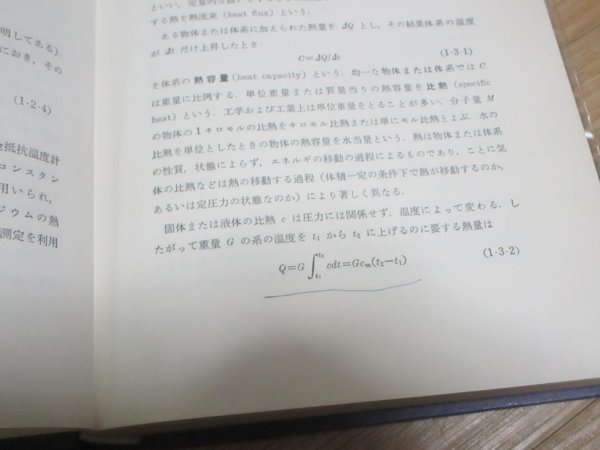 明してある).
におき，その
(1·2·4)
抵抗温度計
コンスタン
用いられ，
ジウムの熱
測定を利用
する熱を熱流束 (heat flux) という．
ある物体または体系に加えられた熱量を ΔQ とし，その結果体系の温度
が Δt だけ上昇したとき
C=ΔQ/Δt (1·3·1)
を体系の熱容量 (heat capacity) という．均一な物体または体系では C
は重量に比例する．単位重量または質量当りの熱容量を比熱 (specific
heat) という．工学および工業上は単位重量をとることが多い．分子量 M
の物体の 1 キロモルの比熱をキロモル比熱または単にモル比熱とよぶ．水の
比熱を単位としたときの物体の熱容量を水当量という．熱は物体または体系
の性質，状態によらず，エネルギの移動の過程によるものであり，ことに気
体の比熱などは熱の移動する過程 (体積一定の条件下で熱が移動するのか，
あるいは定圧力の状態なのか) により著しく異なる．
固体または液体の比熱 c は圧力には関係せず，温度によって変わる．し
たがって重量 G の系の温度を t₁ から t₂ に上げるのに要する熱量は
Q=G∫_{t₁}^{t₂} cdt=Gc_m(t₂−t₁) (1·3·2)